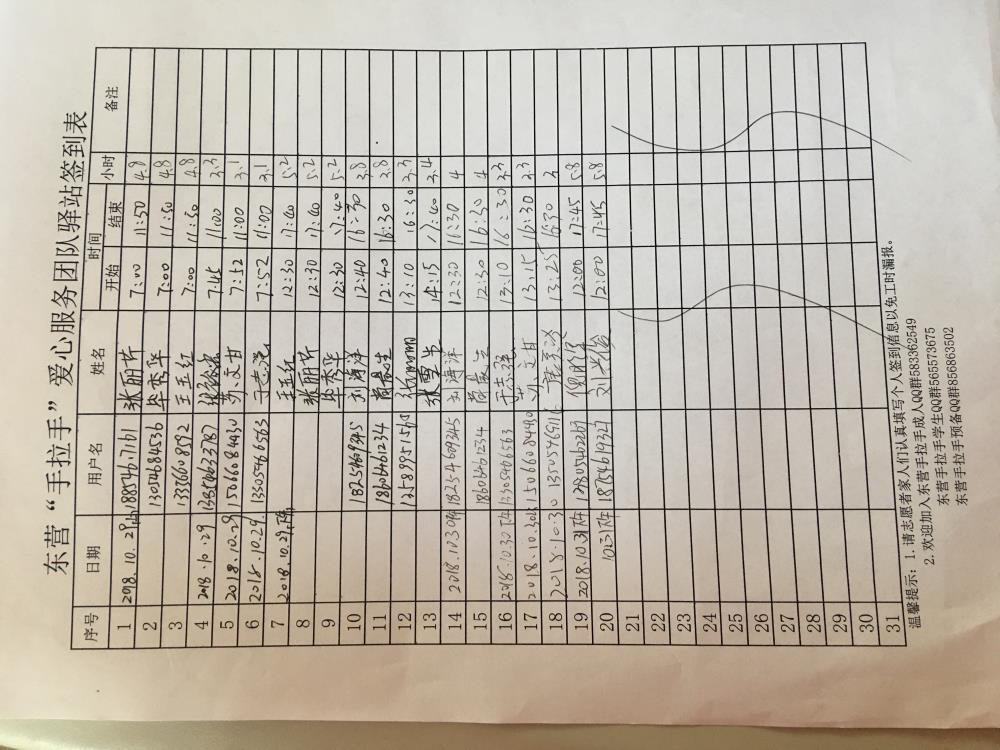 东营“手拉手”爱心服务团队驿站签到表
序号 日期 用户名 姓名 时间 小时 备注
开始 结束
1 2018.10.29 18854671161 张丽芹 7:00 11:50 4.8
2 13054684536 毕秀华 7:00 11:50 4.8
3 13366608592 王玉红 7:00 11:50 4.8
4 2018.10.29 7:45 11:00 3.3
5 2018.10.29 15066084430 苏文甘 7:52 11:00 3.1
6 2018.10.29. 13305466563 于志强 7:52 11:00 3.1
7 2018.10.29下午 王玉红 12:30 17:40 5.2
8 张丽芹 12:30 17:40 5.2
9 毕秀华 12:30 17:40 5.2
10 18254609345 刘海洋 12:40 16:30 3.8
11 18606461234 12:40 16:30 3.8
12 12589951565 13:10 16:30 3.3
13 张雪 14:15 17:40 3.4
14 2018.10.30 18254609345 刘海洋 12:30 16:30 4
15 18606461234 12:30 16:30 4
16 2018.10.30下午 13305466563 于志强 13:10 16:30 3.3
17 2018.10.30 15066084430 苏文甘 13:15 16:30 3.3
18 2018.10.30 13505469116 13:25 16:30 3
19 2018.10.31下午 12805462267 12:00 17:45 5.8
20 10.31下午 18754619321 12:00 17:45 5.8
21
22
23
24
25
26
27
28
29
30
31
温馨提示：1.请志愿者家人们认真填写个人签到信息以免工时漏报。
2.欢迎加入东营手拉手成人QQ群583362549
东营手拉手学生QQ群565573675
东营手拉手预备QQ群856863502